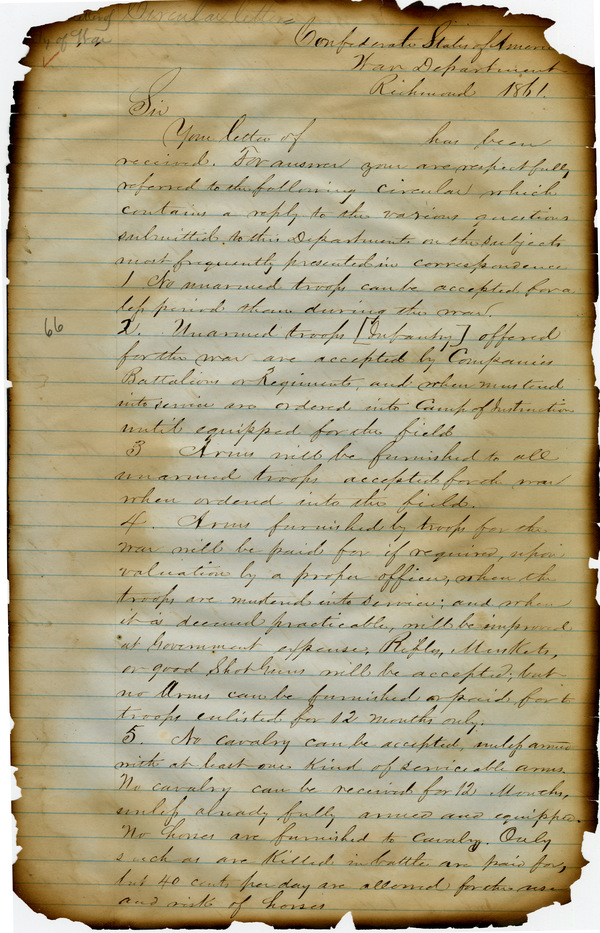 Circular letter
of War
Confederate States of America
War Department
Richmond 1861
Sir
Your letter of has been
received. For answer you are respectfully
referred to the following circular which
contains a reply to the various questions
submitted to this Department on the subjects
most frequently presented in correspondence
1 No unarmed troops can be accepted for a
less period than during the war.
66
2. Unarmed troops [Infantry] offered
for the war are accepted by Companies
Battalions or Regiments, and when mustered
into service are ordered into Camp of Instruction
until equipped for the field
3 Arms will be furnished to all
unarmed troops accepted for the war
when ordered into the field.
4. Arms furnished by troops for the
war will be paid for if required, upon
valuation by a proper officer, when the
troops are mustered into service; and when
it is deemed practicable, will be improved
at Government expense. Rifles, Muskets,
or good Shot Guns will be accepted; but
no Arms can be furnished or paid for to
troops enlisted for 12 months only.
5. No cavalry can be accepted, unless armed
with at least one kind of serviceable arms.
No cavalry can be received for 12 Months,
unless already fully armed and equipped.
No horses are furnished to cavalry. Only
such as are killed in battle are paid for,
but 40 cents per day are allowed for the use
and risk of horses